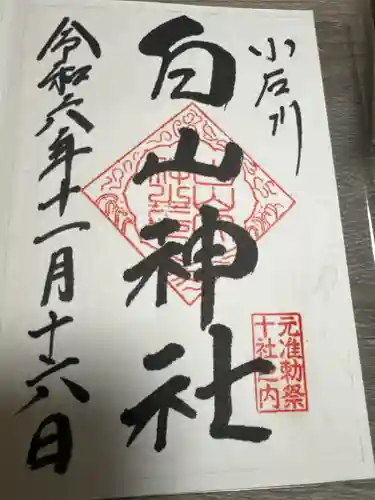 小石川
白山神社
令和六年十一月十六日
元准勅祭
十社之内